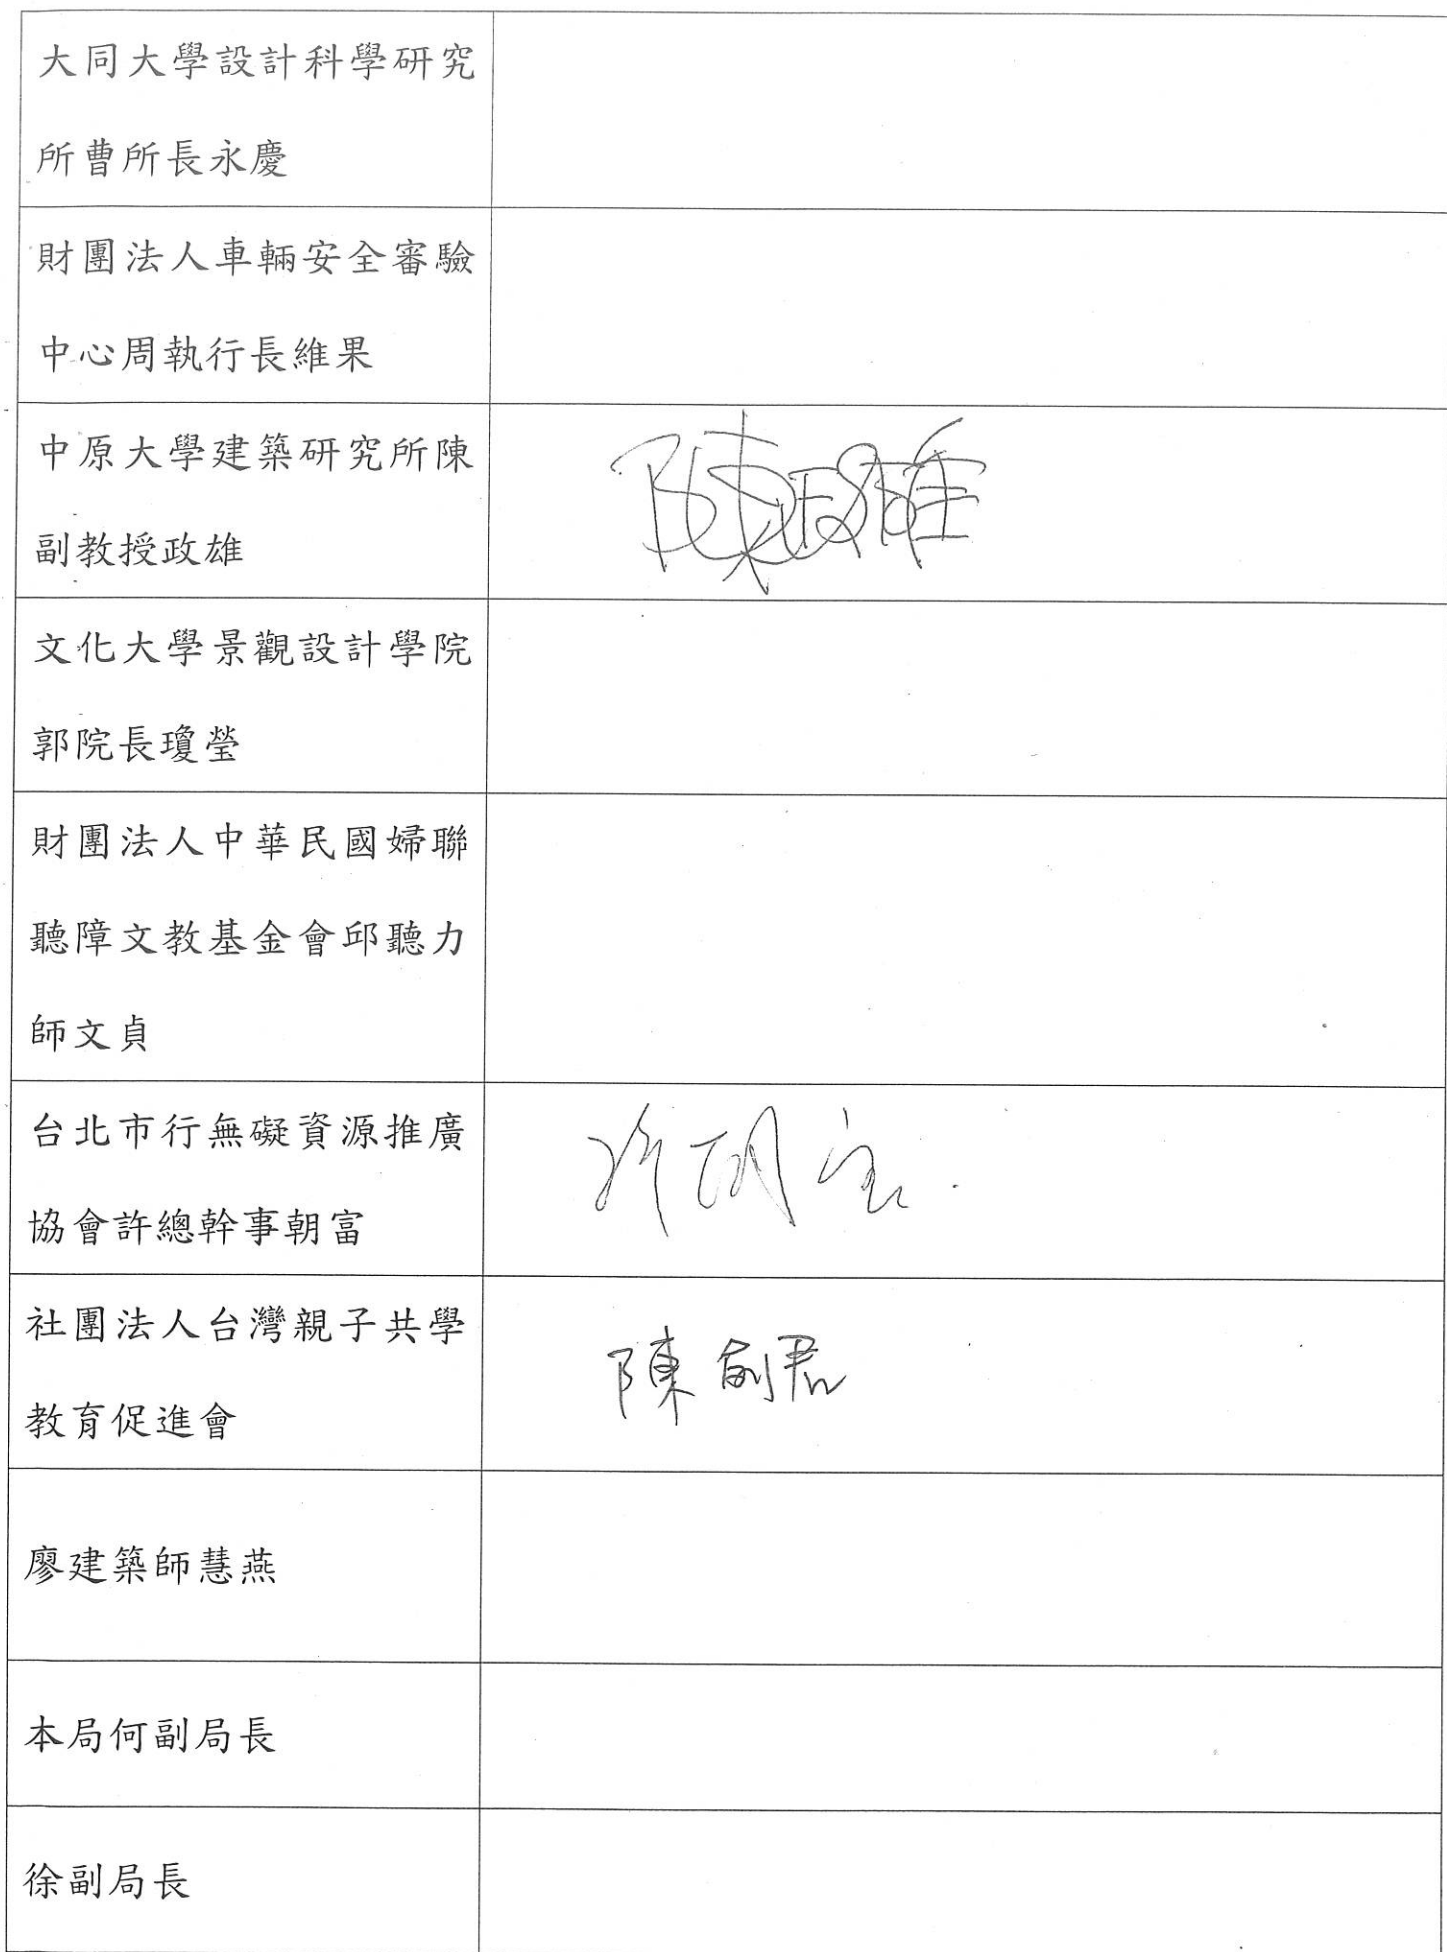 大同大學設計科學研究
所曹所長永慶
財團法人車輛安全審驗
中心周執行長維果
中原大學建築研究所陳
副教授政雄
陳政雄
文化大學景觀設計學院
郭院長瓊瑩
財團法人中華民國婦聯
聽障文教基金會邱聽力
師文貞
台北市行無礙資源推廣
協會許總幹事朝富
許朝富
社團法人台灣親子共學
教育促進會
陳君
廖建築師慧燕
本局何副局長
徐副局長